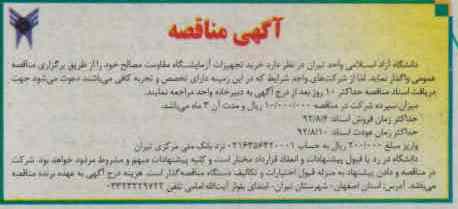 آگهی مناقصه
دانشگاه آزاد اسلامی واحد تیران در نظر دارد خرید تجهیزات آزمایشگاه مقاومت مصالح خود را از طریق برگزاری مناقصه
عمومی واگذار نماید. لذا از شرکت‌های واجد شرایط که در این زمینه دارای تخصص و تجربه کافی می‌باشند دعوت می‌شود جهت
دریافت اسناد مناقصه حداکثر ۱۰ روز بعد از درج آگهی به دبیرخانه واحد مراجعه نمایند.
میزان سپرده شرکت در مناقصه ۱۰/۰۰۰/۰۰۰ ریال و مدت آن ۳ ماه می‌باشد.
حداکثر زمان فروش اسناد: ۹۲/۸/۶
حداکثر زمان عودت اسناد: ۹۲/۸/۱۰
واریز مبلغ ۲۰۰/۰۰۰ ریال به حساب ۰۲۱۶۳۵۶۴۲۰۰۰۱ نزد بانک ملی مرکزی تیران
دانشگاه در رد یا قبول پیشنهادات و انعقاد قرارداد مختار است و کلیه پیشنهادات مبهم و مشروط مردود خواهد بود. شرکت
در مناقصه و دادن پیشنهاد به منزله قبول اختیارات و تکالیف دستگاه مناقصه‌گذار است. هزینه درج آگهی به عهده برنده مناقصه
می‌باشد. آدرس: استان اصفهان - شهرستان تیران- ابتدای بلوار آیت‌الله امامی تلفن ۰۳۳۲۳۲۲۹۶۲۲